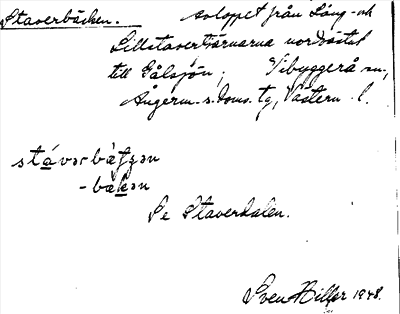 Staverbäcken. avloppet från Lång- och
Lillstavertjärnarna nordväst
till Gålsjön; Vibyggerå sn,
Ångerm. s. doms. tg, Västern. l.
stávər bàʈʂən
-bàkən
Se Staverdalen.
Sven Hiller 1948.